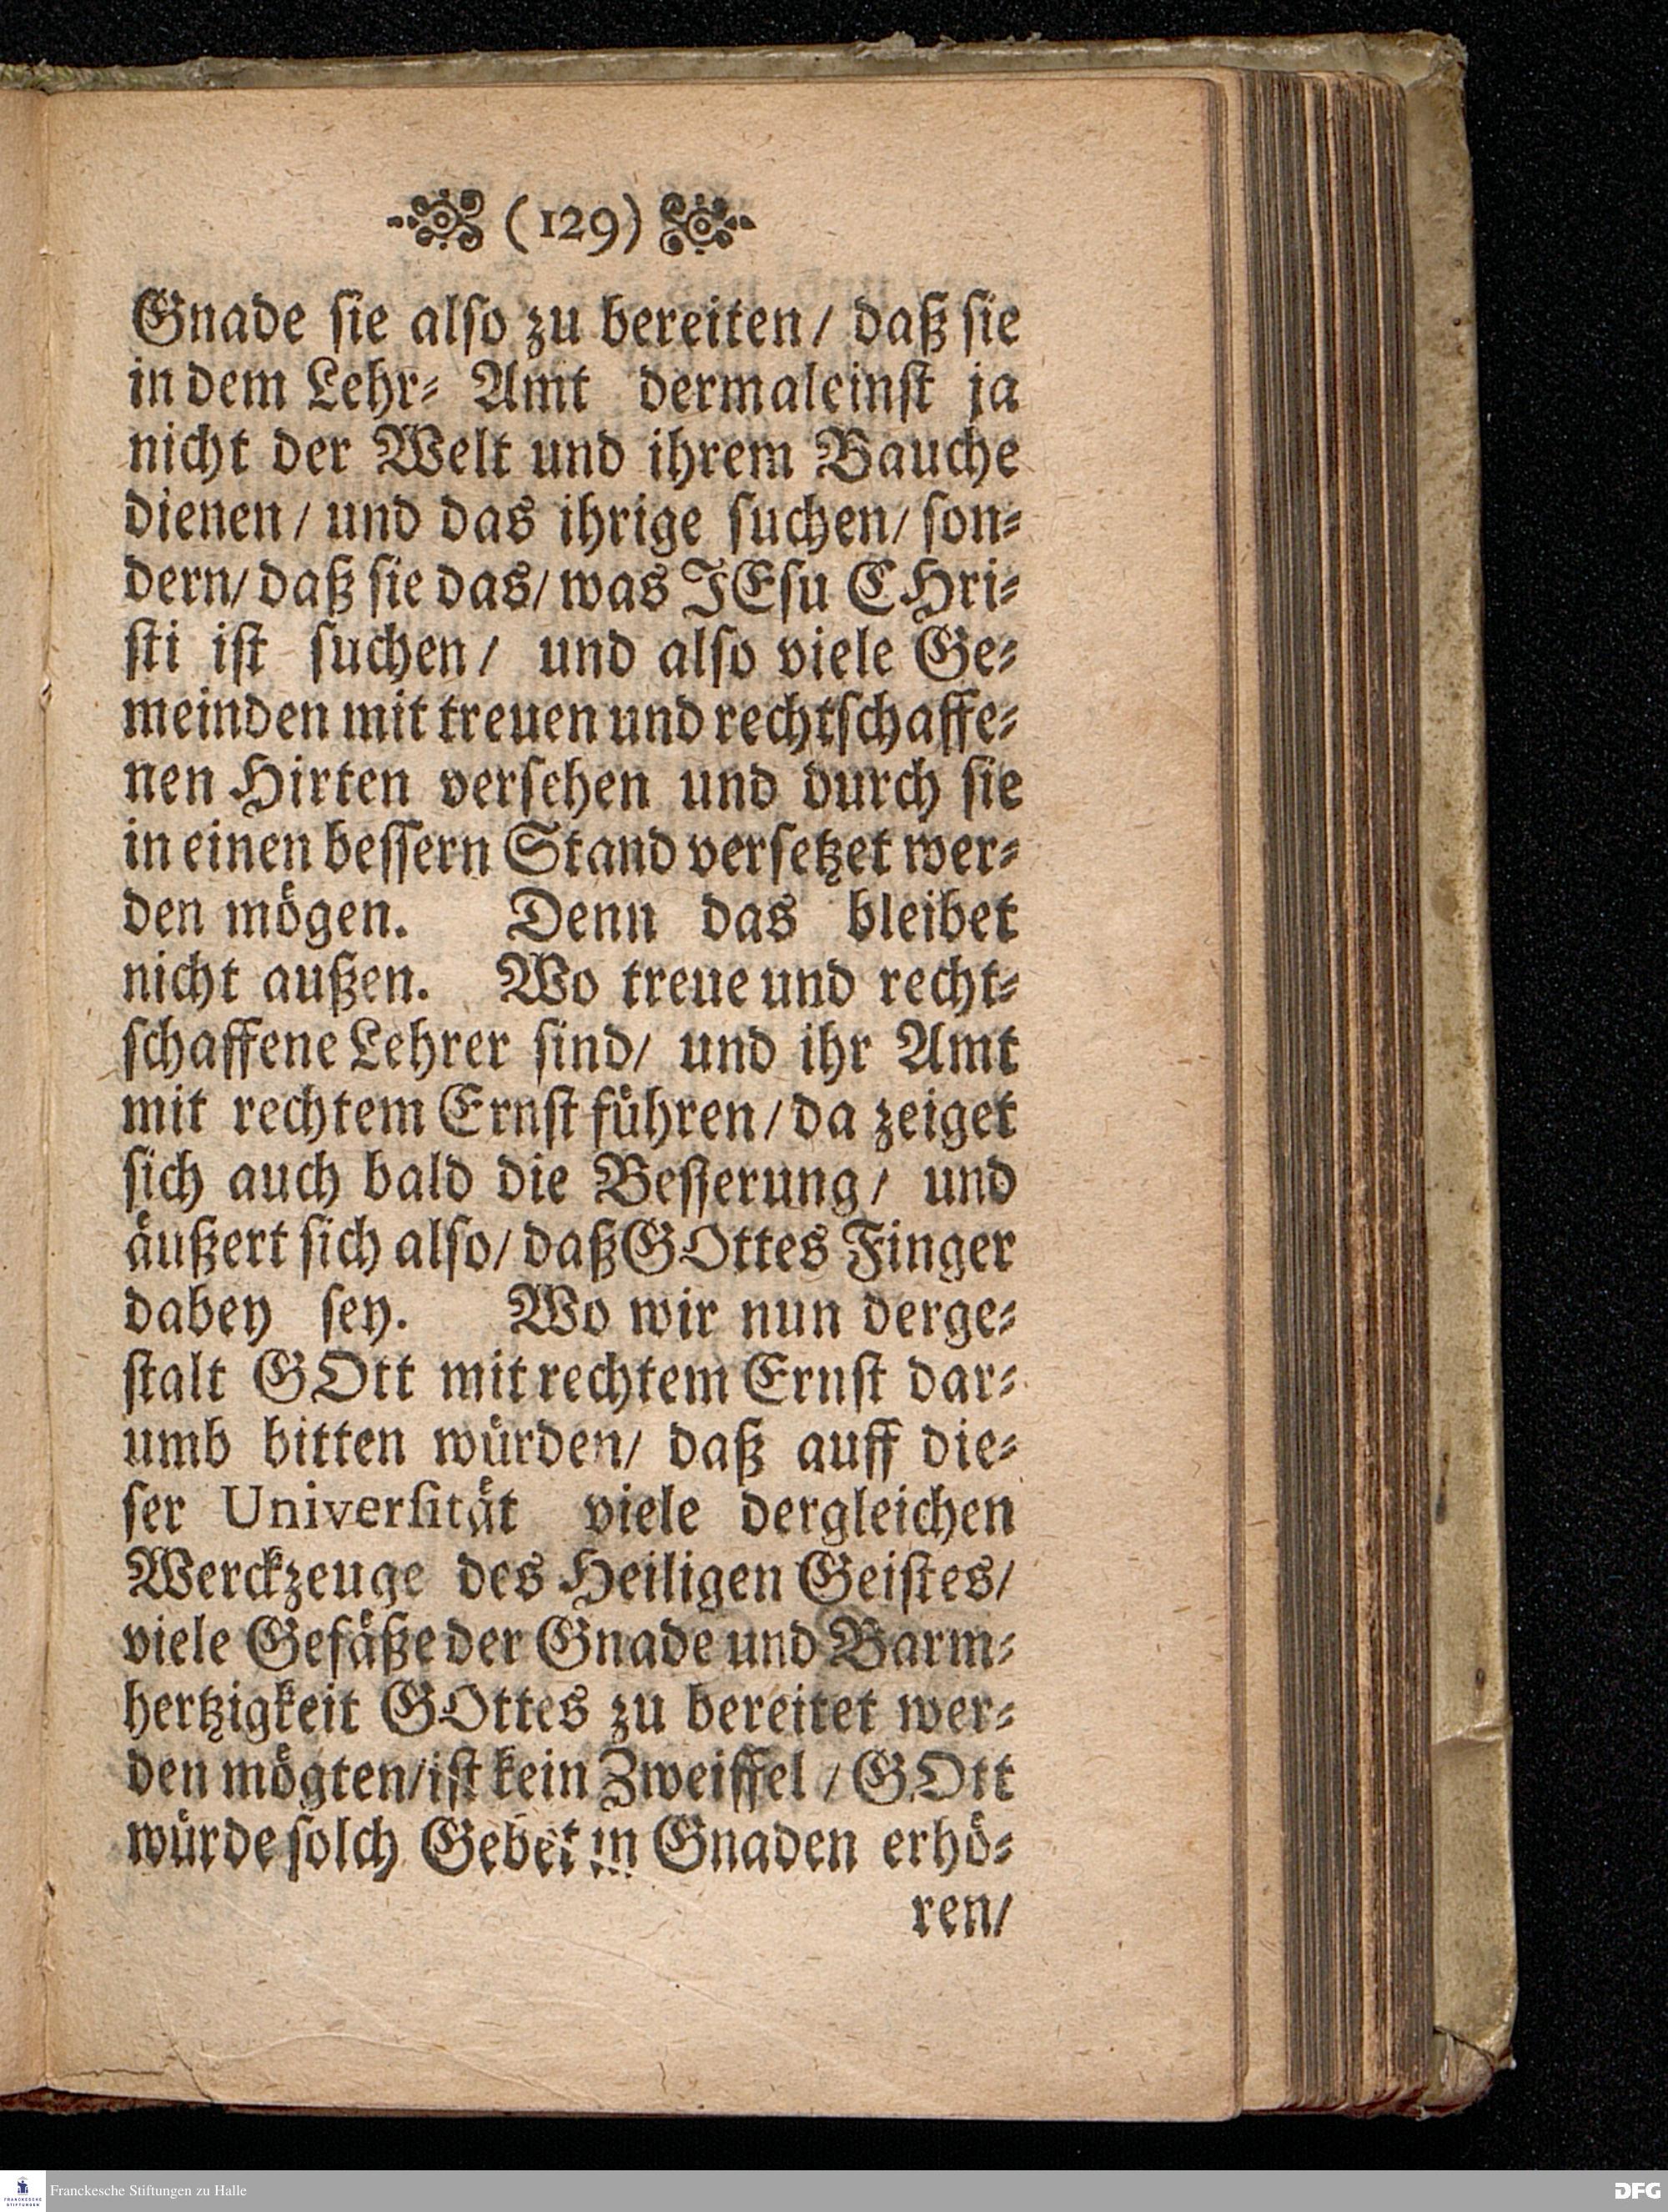 (129)
Gnade sie also zu bereiten/ daß sie
in dem Lehr- Amt dermaleinst ja
nicht der Welt und ihrem Bauche
dienen/ und das ihrige suchen/ son-
dern/ daß sie das/ was JEsu CHri-
sti ist suchen/ und also viele Ge-
meinden mit treuen und rechtschaffe-
nen Hirten versehen und durch sie
in einen bessern Stand versetzet wer-
den mögen. Denn das bleibet
nicht außen. Wo treue und recht-
schaffene Lehrer sind/ und ihr Amt
mit rechtem Ernst führen/ da zeiget
sich auch bald die Besserung/ und
äußert sich also/ daß GOttes Finger
dabey sey. Wo wir nun derge-
stalt GOtt mit rechtem Ernst dar-
umb bitten würden/ daß auff die-
ser Universität viele dergleichen
Werckzeuge des Heiligen Geistes/
viele Gefäße der Gnade und Barm-
hertzigkeit GOttes zu bereitet wer-
den mögten/ ist kein Zweiffel / GOtt
würde solch Gebet in Gnaden erhö-
ren/
FRANCKESCHE STIFTUNGEN
Franckesche Stiftungen zu Halle
DFG